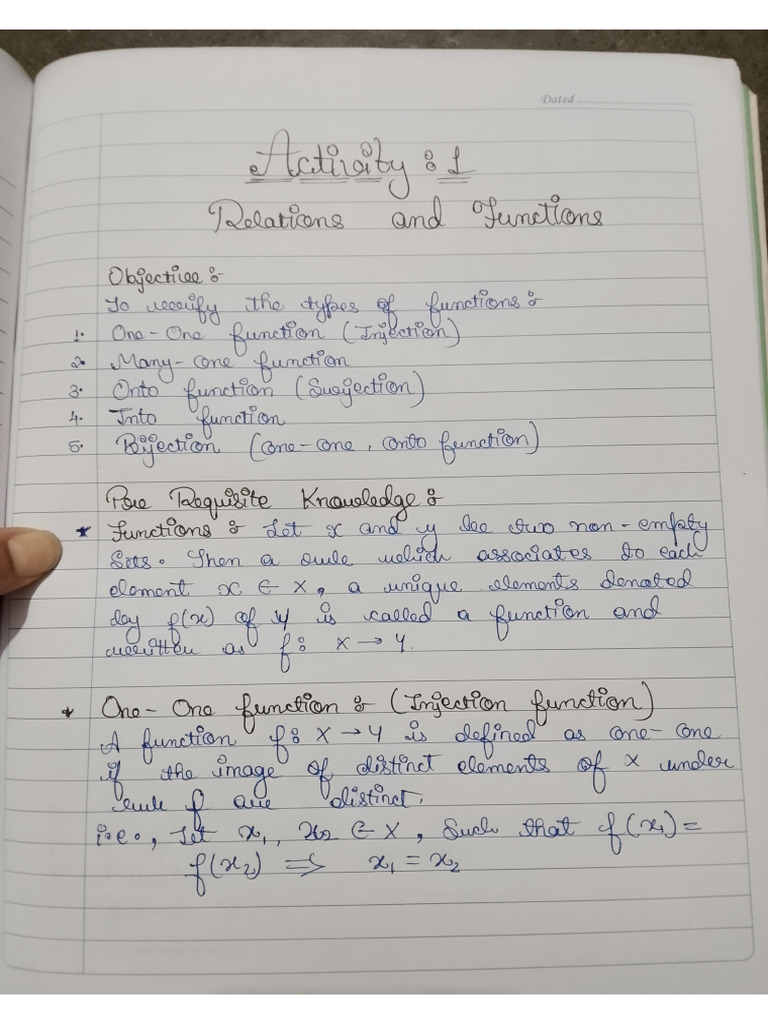 Dated
Activity : 1
Relations and Functions
Objective :
To verify the types of functions :
1. One-One function (Injection)
2. Many-one function
3. Onto function (Surjection)
4. Into function
5. Bijection (one-one, onto function)
Pre Requisite Knowledge :
* Functions : Let x and y be two non-empty
Sets. Then a rule which associates to each
element x ∈ X, a unique elements denoted
by f(x) of y is called a function and
written as f : X → Y.
* One-One function : (Injection function)
A function f : X → Y is defined as one-one
if the image of distinct elements of X under
rule f are distinct.
i.e., Let x₁, x₂ ∈ X, Such that f(x₁) =
f(x₂) ⇒ x₁ = x₂